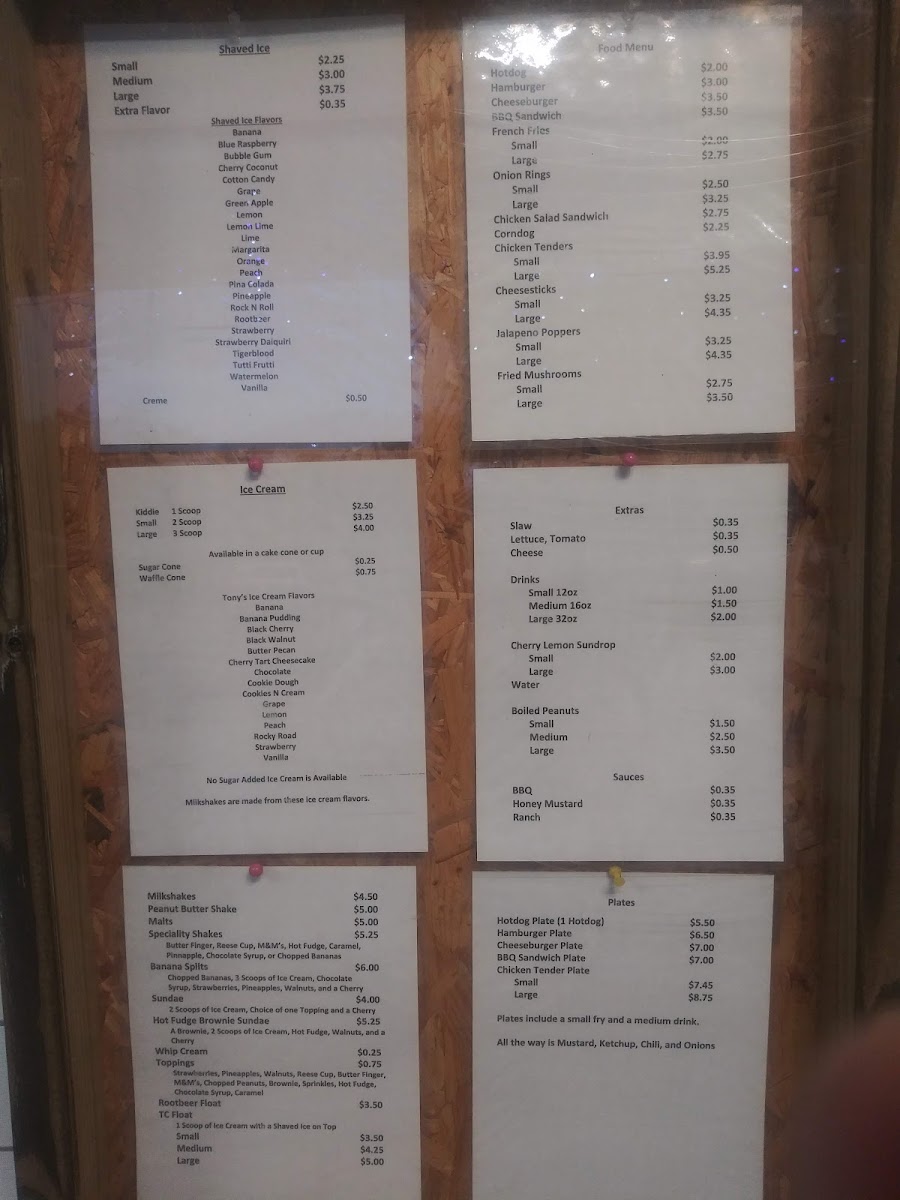 Shaved Ice
Small $2.25
Medium $3.00
Large $3.75
Extra Flavor $0.35
Shaved Ice Flavors
Banana
Blue Raspberry
Bubble Gum
Cherry Coconut
Cotton Candy
Grape
Green Apple
Lemon
Lemon Lime
Lime
Margarita
Orange
Peach
Pina Colada
Pineapple
Rock N Roll
Rootbeer
Strawberry
Strawberry Daiquiri
Tigerblood
Tutti Frutti
Watermelon
Vanilla
Creme $0.50
Food Menu
Hotdog $2.00
Hamburger $3.00
Cheeseburger $3.50
BBQ Sandwich $3.50
French Fries
Small $2.00
Large $2.75
Onion Rings
Small $2.50
Large $3.25
Chicken Salad Sandwich $2.75
Corndog $2.25
Chicken Tenders
Small $3.95
Large $5.25
Cheesesticks
Small $3.25
Large $4.35
Jalapeno Poppers
Small $3.25
Large $4.35
Fried Mushrooms
Small $2.75
Large $3.50
Ice Cream
Kiddie 1 Scoop $2.50
Small 2 Scoop $3.25
Large 3 Scoop $4.00
Available in a cake cone or cup
Sugar Cone $0.25
Waffle Cone $0.75
Tony's Ice Cream Flavors
Banana
Banana Pudding
Black Cherry
Black Walnut
Butter Pecan
Cherry Tart Cheesecake
Chocolate
Cookie Dough
Cookies N Cream
Grape
Lemon
Peach
Rocky Road
Strawberry
Vanilla
No Sugar Added Ice Cream is Available
Milkshakes are made from these ice cream flavors.
Extras
Slaw $0.35
Lettuce, Tomato $0.35
Cheese $0.50
Drinks
Small 12oz $1.00
Medium 16oz $1.50
Large 32oz $2.00
Cherry Lemon Sundrop
Small $2.00
Large $3.00
Water
Boiled Peanuts
Small $1.50
Medium $2.50
Large $3.50
Sauces
BBQ $0.35
Honey Mustard $0.35
Ranch $0.35
Milkshakes $4.50
Peanut Butter Shake $5.00
Malts $5.00
Speciality Shakes $5.25
Butter Finger, Reese Cup, M&M's, Hot Fudge, Caramel,
Pinnapple, Chocolate Syrup, or Chopped Bananas
Banana Splits $6.00
Chopped Bananas, 3 Scoops of Ice Cream, Chocolate
Syrup, Strawberries, Pineapples, Walnuts, and a Cherry
Sundae $4.00
2 Scoops of Ice Cream, Choice of one Topping and a Cherry
Hot Fudge Brownie Sundae $5.25
A Brownie, 2 Scoops of Ice Cream, Hot Fudge, Walnuts, and a
Cherry
Whip Cream $0.25
Toppings $0.75
Strawberries, Pineapples, Walnuts, Reese Cup, Butter Finger,
M&M's, Chopped Peanuts, Brownie, Sprinkles, Hot Fudge,
Chocolate Syrup, Caramel
Rootbeer Float $3.50
TC Float
1 Scoop of Ice Cream with a Shaved Ice on Top
Small $3.50
Medium $4.25
Large $5.00
Plates
Hotdog Plate (1 Hotdog) $5.50
Hamburger Plate $6.50
Cheeseburger Plate $7.00
BBQ Sandwich Plate $7.00
Chicken Tender Plate
Small $7.45
Large $8.75
Plates include a small fry and a medium drink.
All the way is Mustard, Ketchup, Chili, and Onions